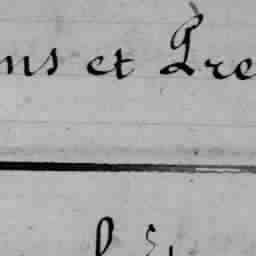 ns et Pre